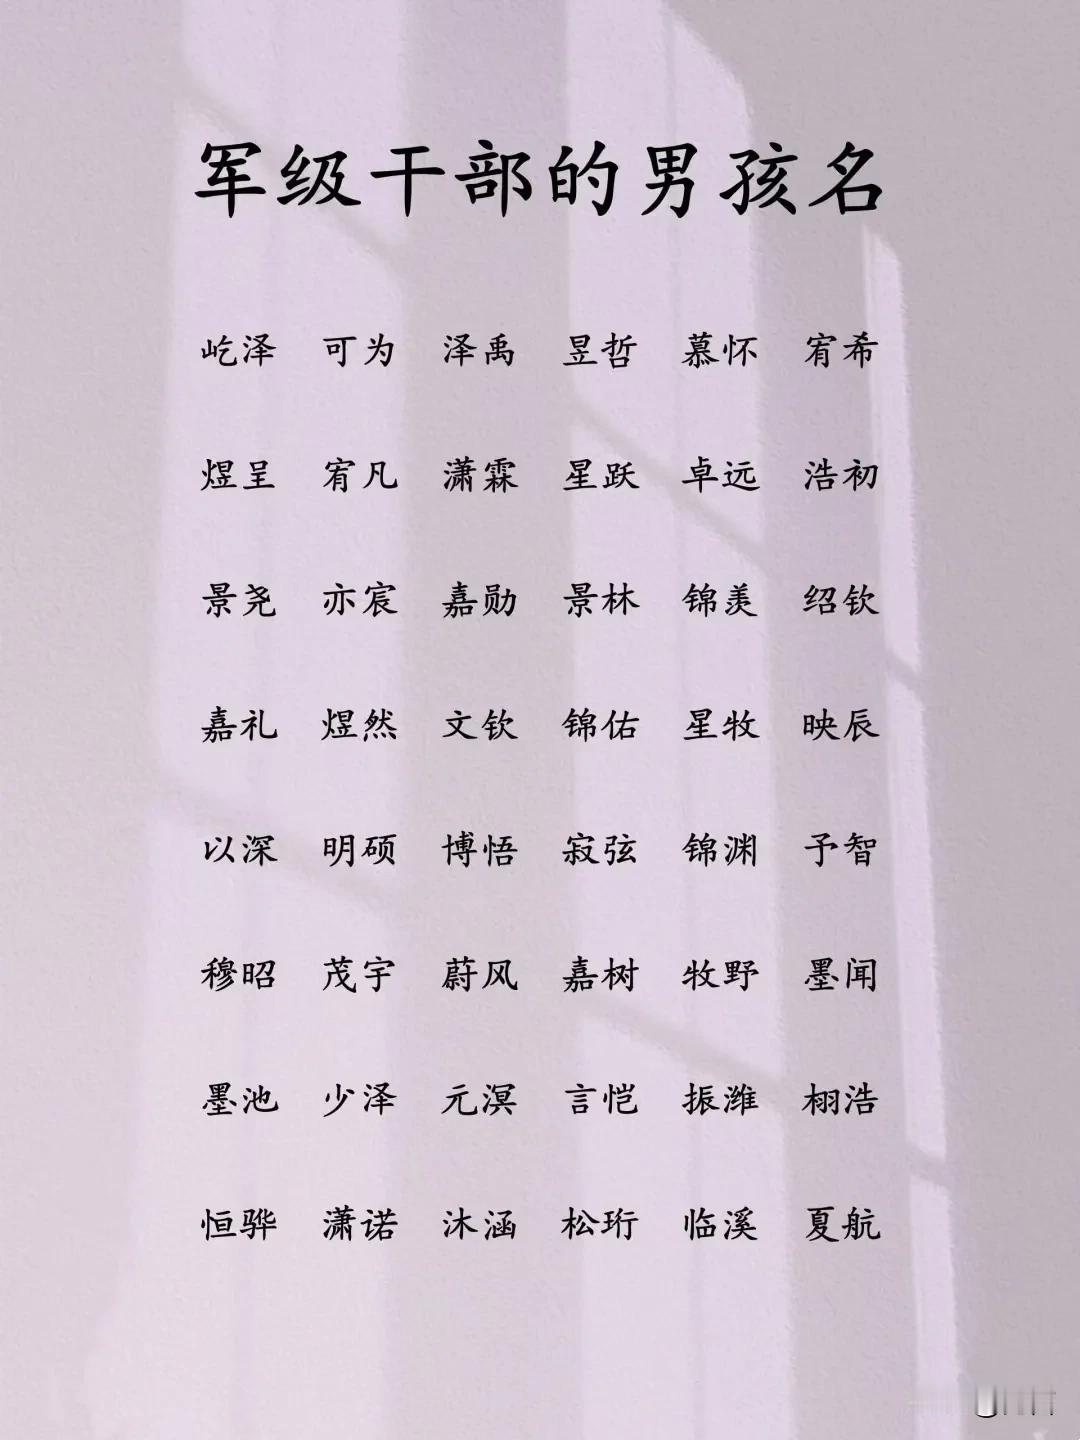 军级干部的男孩名
屹泽 可为 泽禹 昱哲 慕怀 宥希
煜呈 宥凡 潇霖 星跃 卓远 浩初
景尧 亦宸 嘉勋 景林 锦羡 绍钦
嘉礼 煜然 文钦 锦佑 星牧 映辰
以深 明硕 博悟 寂弦 锦渊 予智
穆昭 茂宇 蔚风 嘉树 牧野 墨闻
墨池 少泽 元溟 言恺 振潍 栩浩
恒骅 潇诺 沐涵 松珩 临溪 夏航